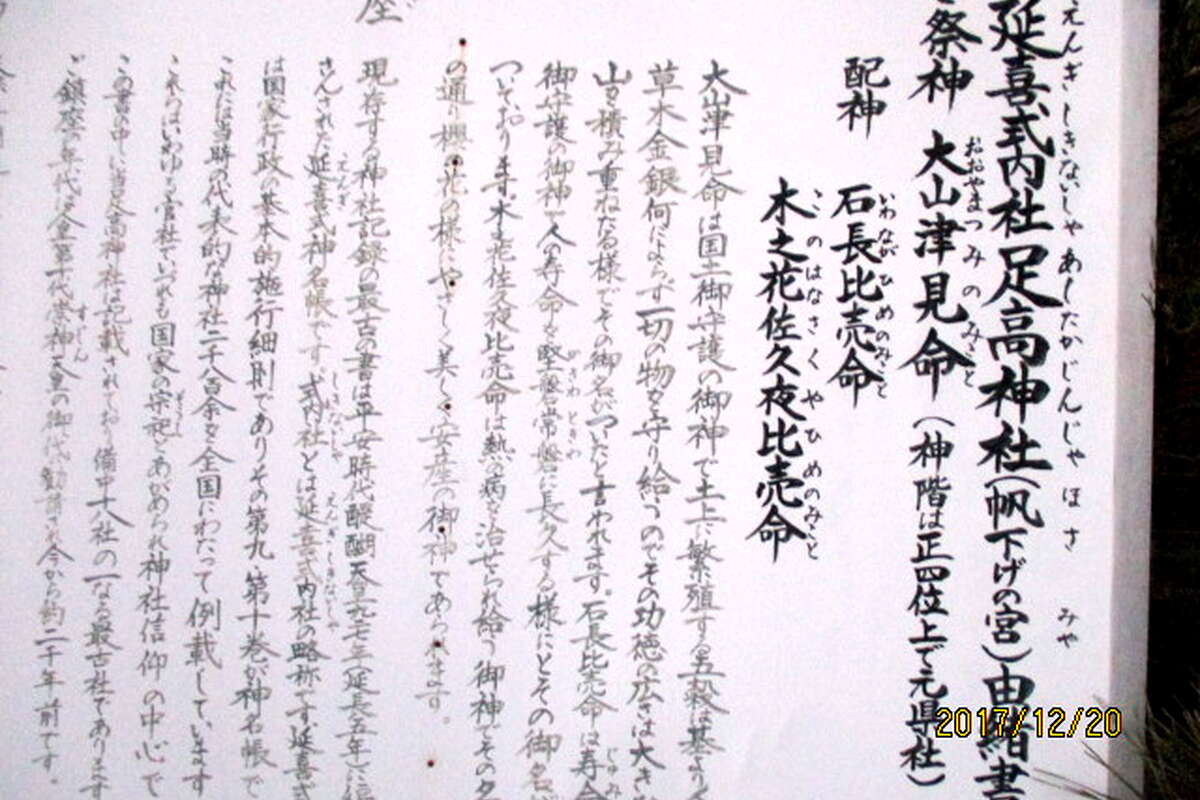 延喜式内社足高神社(帆下げの宮)由緒書
えんぎしきないしゃあしたかじんじゃ ほさ みや
祭神 大山津見命(神階は正四位上で元県社)
おおやまつみのみこと
配神 石長比売命
いわながひめのみこと
木之花佐久夜比売命
このはなさくやひめのみこと
大山津見命は国土御守護の御神で土上に繁殖する五穀は基より
草木金銀何によらず一切の物を守り給うのでその功徳の広さは大きな
山を積み重ねたる様でその御名がついたと言われます。石長比売命は寿命
御守護の御神で人の寿命を堅磐常磐に長久する様にとその御名が
かきわ ときわ
ついております。木之花佐久夜比売命は熱の病を治せられ給う御神でその名
の通り櫻の花の様にやさしく美しく安産の御神であられます。
座
現存する神社記録の最古の書は平安時代醍醐天皇九二七年(延長五年)に
さんされた延喜式神名帳です。式内社とは延喜式内社の略称です。延喜式
えんぎ しきないしゃ えんぎしきないしゃ
は国家行政の基本的施行細則でありその第九、第十巻が神名帳で
これには当時の代表的な神社二千八百余を全国にわたって例載しています
これらはいわゆる官社でいづれも国家の宗祀とあがめられ神社信仰の中心で
そうし
この書の中に当足高神社は記載されており備中十八社の一なる最古社であります
ご鎮座の年代は人皇第十代崇神天皇の御代勧請され今から約二千年前です。
すじん
2017/12/20